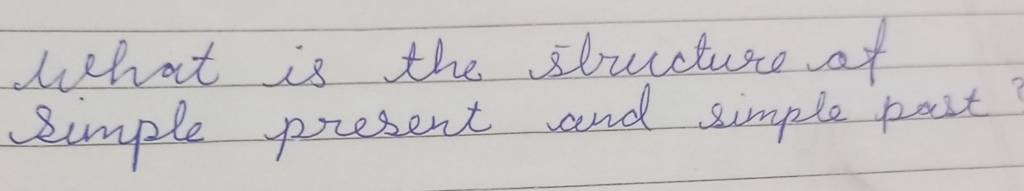 What is the structure of
simple present and simple past ?